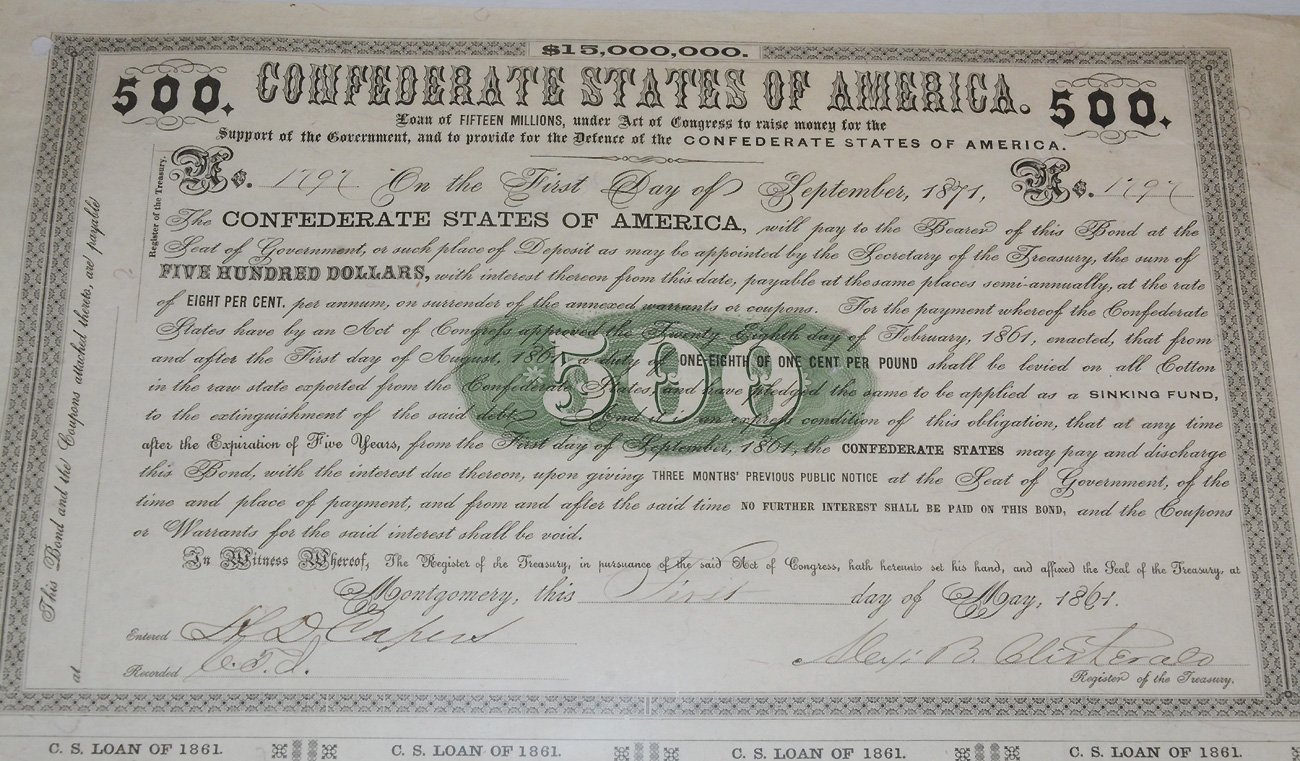 $15,000,000.
500. CONFEDERATE STATES OF AMERICA. 500.
Loan of FIFTEEN MILLIONS, under Act of Congress to raise money for the
Support of the Government, and to provide for the Defence of the CONFEDERATE STATES OF AMERICA.
No. 1797 On the First Day of September, 1871, No. 1797
The CONFEDERATE STATES OF AMERICA, will pay to the Bearer of this Bond at the
Seat of Government, or such place of Deposit as may be appointed by the Secretary of the Treasury, the sum of
FIVE HUNDRED DOLLARS, with interest thereon from this date, payable at the same places semi-annually, at the rate
of EIGHT PER CENT. per annum, on surrender of the annexed warrants or coupons. For the payment whereof the Confederate
States have by an Act of Congress approved the Twenty Eighth day of February, 1861, enacted, that from
and after the First day of August, 1861, a duty of ONE-EIGHTH OF ONE CENT PER POUND shall be levied on all Cotton
in the raw state exported from the Confederate States, and have pledged the same to be applied as a SINKING FUND,
to the extinguishment of the said debt. And it is an express condition of this obligation, that at any time
after the Expiration of Five Years, from the First day of September, 1861, the CONFEDERATE STATES may pay and discharge
this Bond, with the interest due thereon, upon giving THREE MONTHS' PREVIOUS PUBLIC NOTICE at the Seat of Government, of the
time and place of payment, and from and after the said time NO FURTHER INTEREST SHALL BE PAID ON THIS BOND, and the Coupons
or Warrants for the said interest shall be void.
500
In Witness Whereof, The Register of the Treasury, in pursuance of the said Act of Congress, hath hereunto set his hand, and affixed the Seal of the Treasury, at
Montgomery, this First day of May, 1861.
Entered H D Capers
Recorded C. T. D.
Alex. B. Clitherall
Register of the Treasury.
This Bond and the Coupons attached thereto, are payable
at
Register of the Treasury.
C. S. LOAN OF 1861. C. S. LOAN OF 1861. C. S. LOAN OF 1861. C. S. LOAN OF 1861.